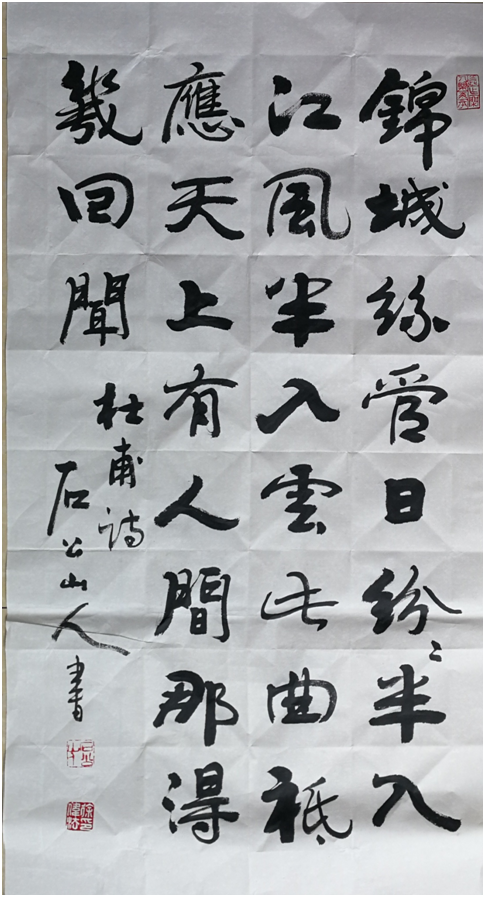 錦城絲管日紛〻半入
江風半入雲此曲祗
應天上有人間那得
幾回聞
杜甫詩
石公山人書